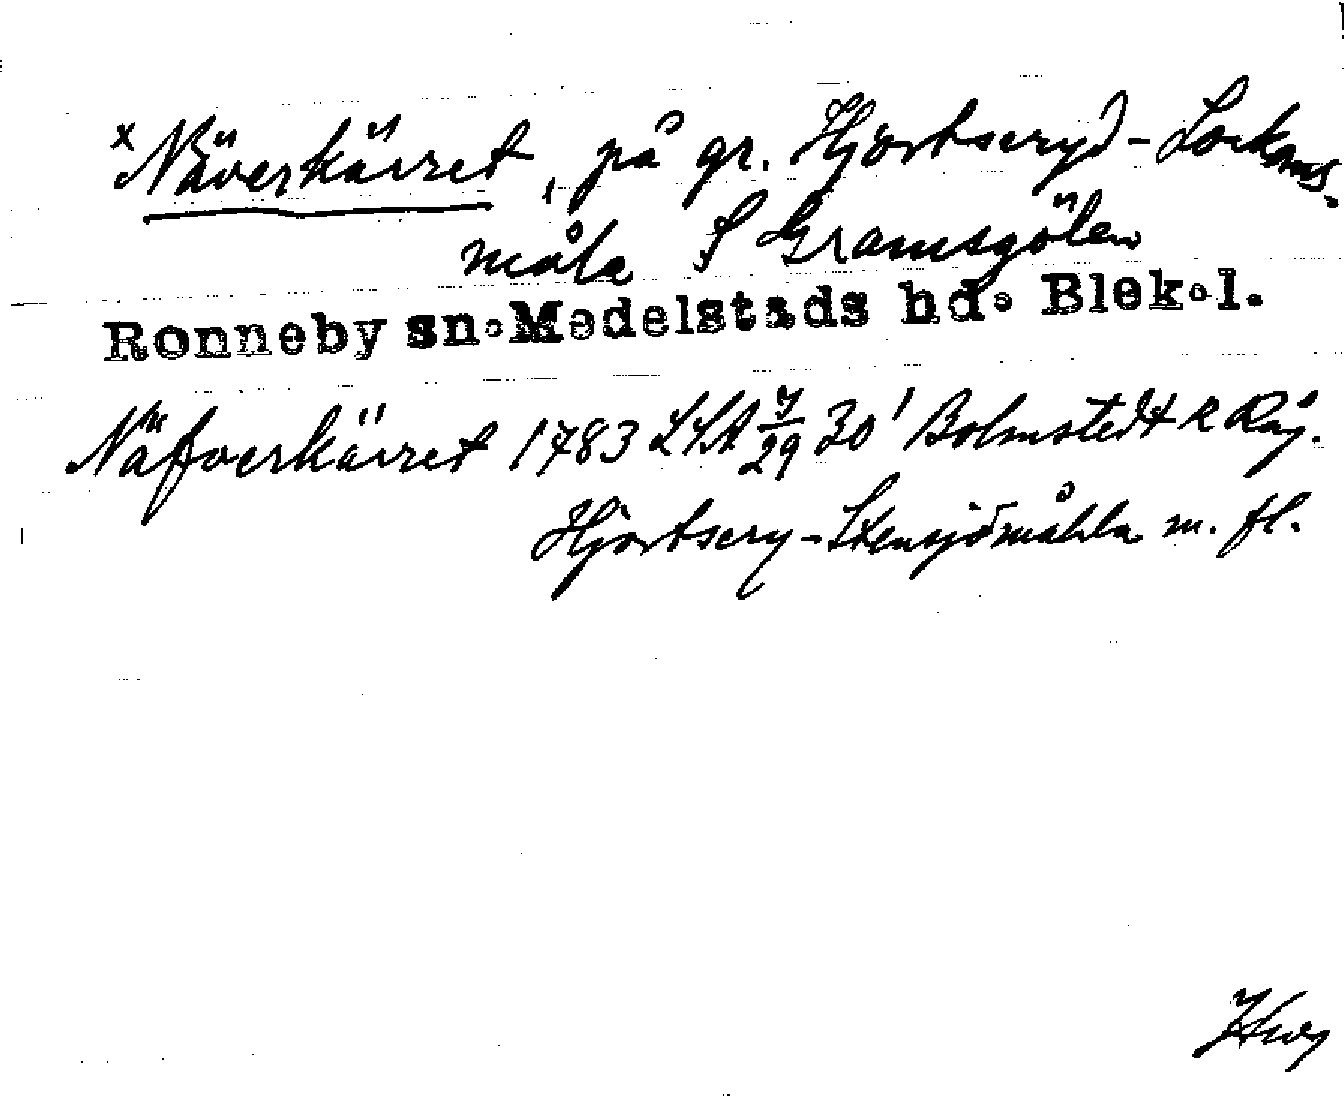 x Näverkärret, på gr. Hjortseryd-Lockans-
måla S Gramsgölen
Ronneby sn. Medelstads hd. Blek. l.
Näfverkärret 1783 LSA 7/29 30' Bolmstedt R Råg.
Hjortsery-Stensjömåhla m. fl.